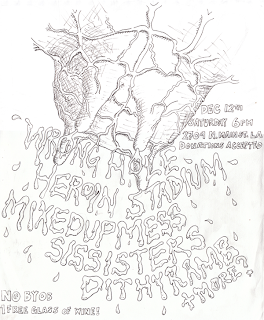 DEC 12TH
SATURDAY 6PM
2709 N. MAIN ST. L.A.
DONATIONS ACCEPTED
WRONG HOLE
HEROIN STADIUM
MIXEDUPMESS
SISSISTERS
DITHYRAMB
+ MORE?
NO BYOB
1 FREE GLASS OF WINE!